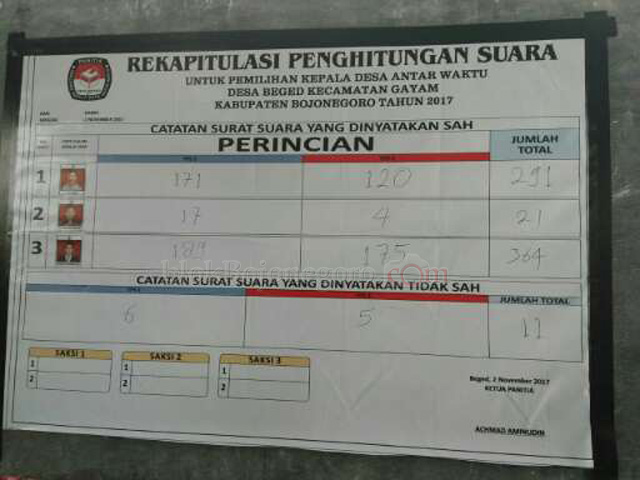 PANITIA
REKAPITULASI PENGHITUNGAN SUARA
UNTUK PEMILIHAN KEPALA DESA ANTAR WAKTU
DESA BEGED KECAMATAN GAYAM
KABUPATEN BOJONEGORO TAHUN 2017
HARI
TANGGAL : 2 NOVEMBER 2017
CATATAN SURAT SUARA YANG DINYATAKAN SAH
PERINCIAN JUMLAH TOTAL
1 171 120 291
2 17 4 21
3 189 175 364
blokBojonegoro.com
CATATAN SURAT SUARA YANG DINYATAKAN TIDAK SAH
JUMLAH TOTAL
6 5 11
SAKSI 1 SAKSI 2 SAKSI 3
1 1 1
2 2 2
Beged, 2 November 2017
KETUA PANITIA
ACHMAD AMINUDIN